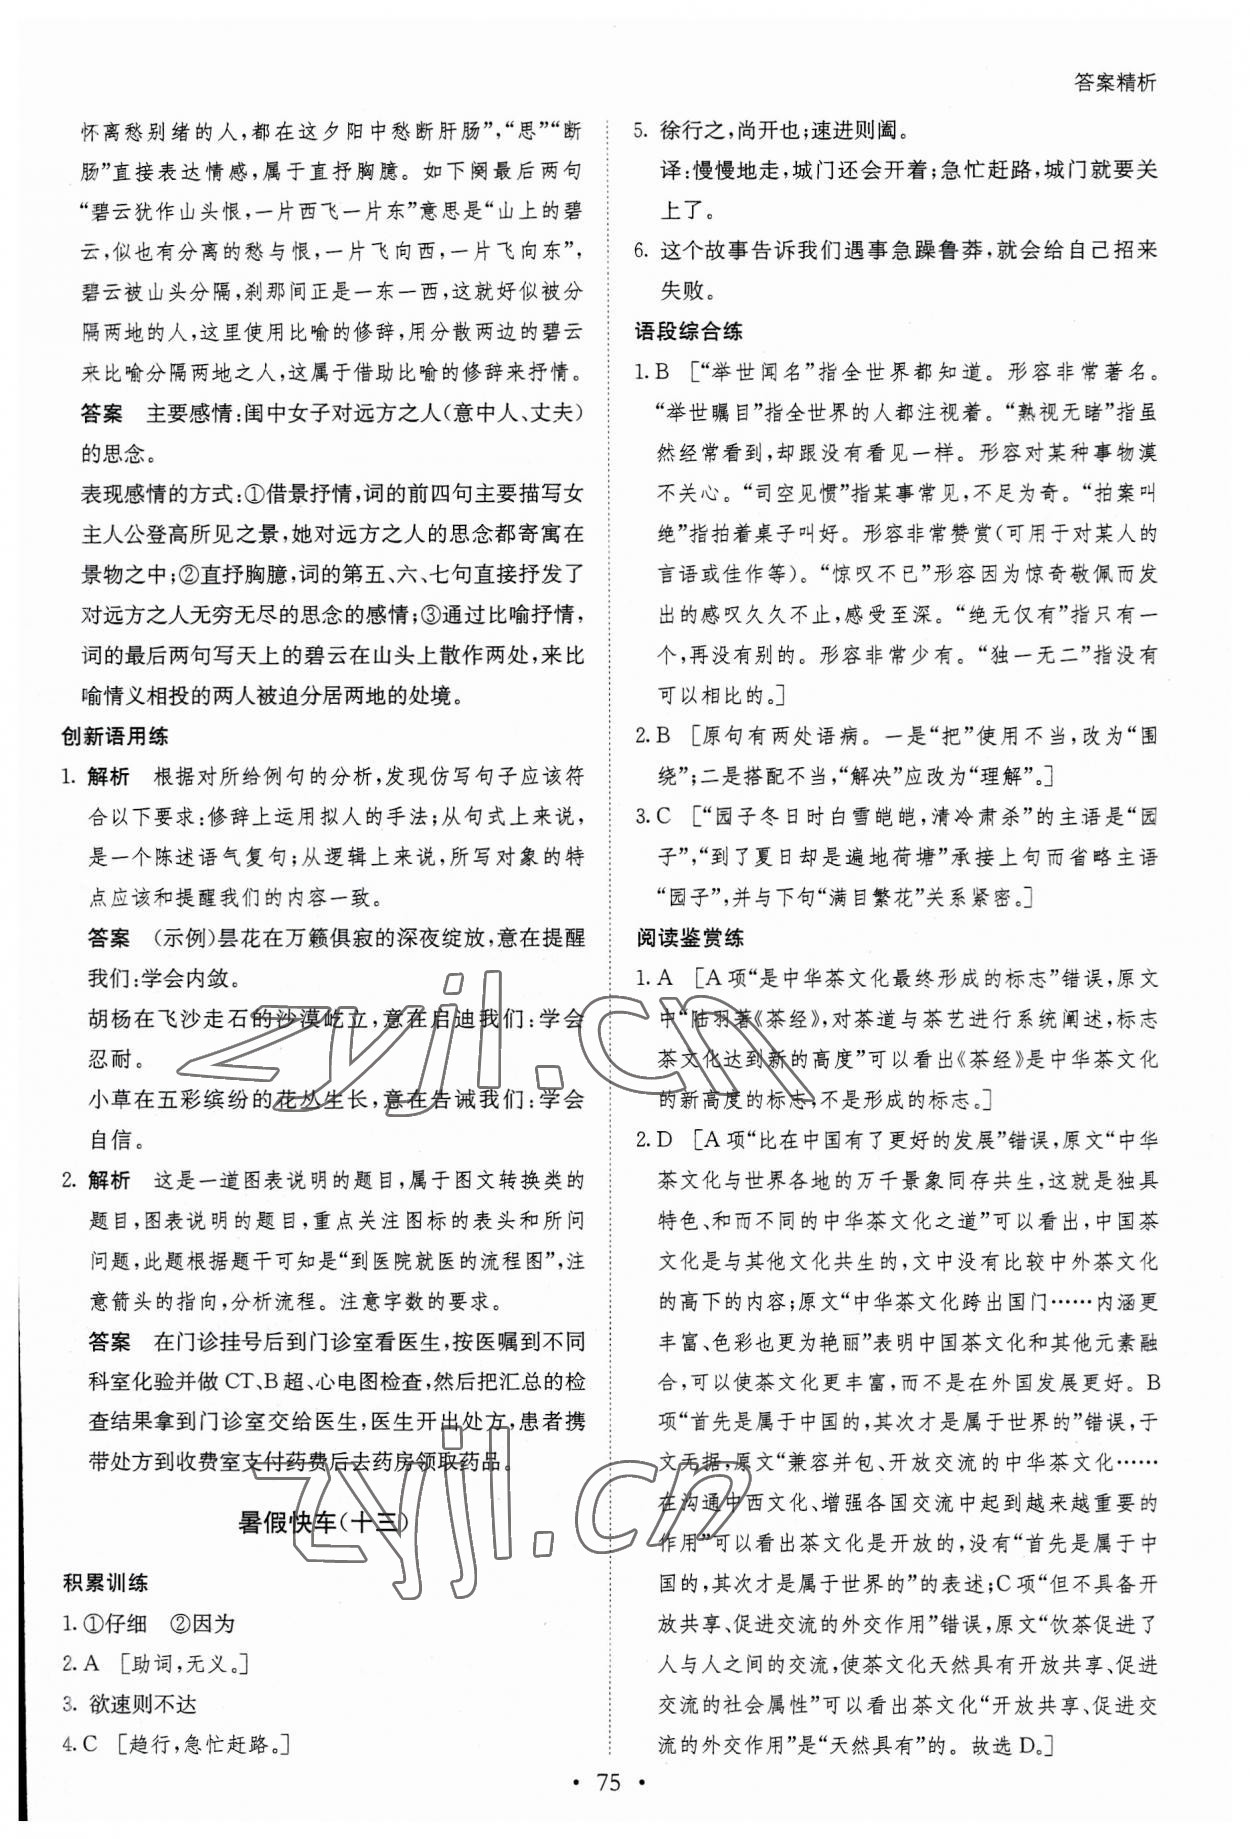 答案精析
怀离愁别绪的人,都在这夕阳中愁断肝肠”,“思”“断
肠”直接表达情感,属于直抒胸臆。如下阕最后两句
“碧云犹作山头恨,一片西飞一片东”意思是“山上的碧
云,似也有分离的愁与恨,一片飞向西,一片飞向东”,
碧云被山头分隔,刹那间正是一东一西,这就好似被分
隔两地的人,这里使用比喻的修辞,用分散两边的碧云
来比喻分隔两地之人,这属于借助比喻的修辞来抒情。
答案 主要感情:闺中女子对远方之人(意中人、丈夫)
的思念。
表现感情的方式:①借景抒情,词的前四句主要描写女
主人公登高所见之景,她对远方之人的思念都寄寓在
景物之中;②直抒胸臆,词的第五、六、七句直接抒发了
对远方之人无穷无尽的思念的感情;③通过比喻抒情,
词的最后两句写天上的碧云在山头上散作两处,来比
喻情义相投的两人被迫分居两地的处境。
创新语用练
1. 解析 根据对所给例句的分析,发现仿写句子应该符
合以下要求:修辞上运用拟人的手法;从句式上来说,
是一个陈述语气复句;从逻辑上来说,所写对象的特
点应该和提醒我们的内容一致。
答案 (示例)昙花在万籁俱寂的深夜绽放,意在提醒
我们:学会内敛。
胡杨在飞沙走石的沙漠屹立,意在启迪我们:学会
忍耐。
小草在五彩缤纷的花丛生长,意在告诫我们:学会
自信。
2. 解析 这是一道图表说明的题目,属于图文转换类的
题目,图表说明的题目,重点关注图标的表头和所问
问题,此题根据题干可知是“到医院就医的流程图”,注
意箭头的指向,分析流程。注意字数的要求。
答案 在门诊挂号后到门诊室看医生,按医嘱到不同
科室化验并做 CT、B 超、心电图检查,然后把汇总的检
查结果拿到门诊室交给医生,医生开出处方,患者携
带处方到收费室支付药费后去药房领取药品。
暑假快车(十三)
积累训练
1. ①仔细 ②因为
2. A [助词,无义。]
3. 欲速则不达
4. C [趋行,急忙赶路。]
5. 徐行之,尚开也;速进则阖。
译:慢慢地走,城门还会开着;急忙赶路,城门就要关
上了。
6. 这个故事告诉我们遇事急躁鲁莽,就会给自己招来
失败。
语段综合练
1. B [“举世闻名”指全世界都知道。形容非常著名。
“举世瞩目”指全世界的人都注视着。“熟视无睹”指虽
然经常看到,却跟没有看见一样。形容对某种事物漠
不关心。“司空见惯”指某事常见,不足为奇。“拍案叫
绝”指拍着桌子叫好。形容非常赞赏(可用于对某人的
言语或佳作等)。“惊叹不已”形容因为惊奇敬佩而发
出的感叹久久不止,感受至深。“绝无仅有”指只有一
个,再没有别的。形容非常少有。“独一无二”指没有
可以相比的。]
2. B [原句有两处语病。一是“把”使用不当,改为“围
绕”;二是搭配不当,“解决”应改为“理解”。]
3. C [“园子冬日时白雪皑皑,清冷肃杀”的主语是“园
子”,“到了夏日却是遍地荷塘”承接上句而省略主语
“园子”,并与下句“满目繁花”关系紧密。]
阅读鉴赏练
1. A [A 项“是中华茶文化最终形成的标志”错误,原文
中“陆羽著《茶经》,对茶道与茶艺进行系统阐述,标志
茶文化达到新的高度”可以看出《茶经》是中华茶文化
的新高度的标志,不是形成的标志。]
2. D [A 项“比在中国有了更好的发展”错误,原文“中华
茶文化与世界各地的万千景象同存共生,这就是独具
特色、和而不同的中华茶文化之道”可以看出,中国茶
文化是与其他文化共生的,文中没有比较中外茶文化
的高下的内容;原文“中华茶文化跨出国门……内涵更
丰富、色彩也更为艳丽”表明中国茶文化和其他元素融
合,可以使茶文化更丰富,而不是在外国发展更好。B
项“首先是属于中国的,其次才是属于世界的”错误,于
文无据,原文“兼容并包、开放交流的中华茶文化……
在沟通中西文化、增强各国交流中起到越来越重要的
作用”可以看出中国茶文化是开放的,没有“首先是属于中
国的,其次才是属于世界的”的表述;C 项“但不具备开
放共享、促进交流的外交作用”错误,原文“饮茶促进了
人与人之间的交流,使茶文化天然具有开放共享、促进
交流的社会属性”可以看出茶文化“开放共享、促进交
流的外交作用”是“天然具有”的。故选 D。]
zyjl.cn
zyjl.cn
• 75 •